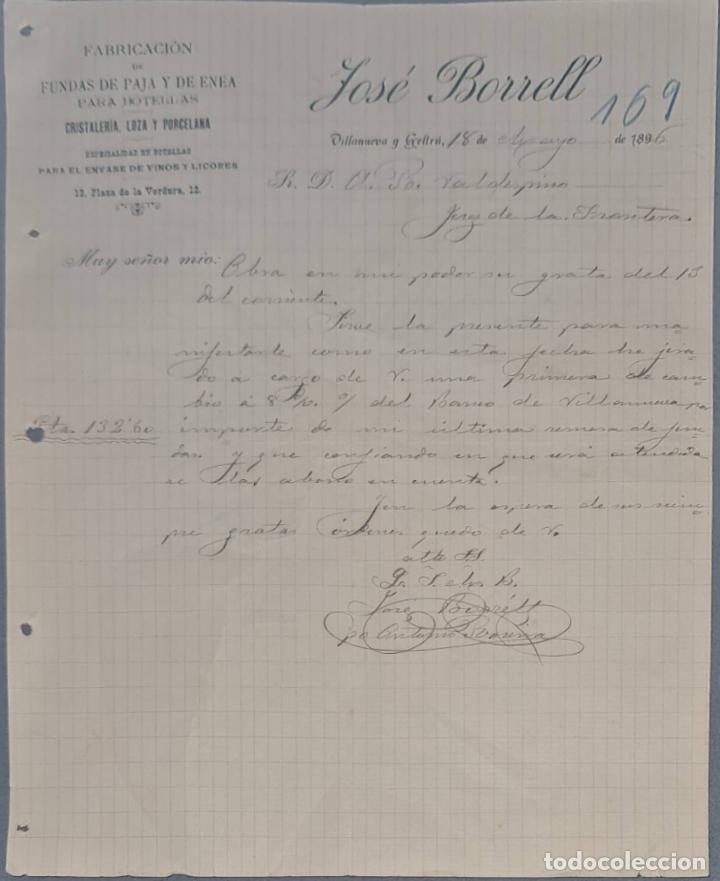 FABRICACIÓN
DE
FUNDAS DE PAJA Y DE ENEA
PARA BOTELLAS
CRISTALERÍA, LOZA Y PORCELANA
ESPECIALIDAD EN BOTELLAS
PARA EL ENVASE DE VINOS Y LICORES
12, Plaza de la Verdura, 12.
José Borrell
169
Villanueva y Geltrú, 18 de Mayo de 1896
S. D. A. R. Valdespino
Jerez de la Frontera.
Muy señor mío: Obra en mi poder su grata del 13
del corriente.
Sirve la presente para ma
nifestarle como en esta fecha he gira-
do á cargo de V. una primera de cam-
bio á 8 d/v. o/ del Banco de Villanueva por
Pts. 133'60 importe de mi última remesa de fun-
das y que confiando en que será atendida
se las abono en cuenta.
En la espera de sus siem-
pre gratas órdenes quedo de V.
atto SS.
Q. S. M. B.
José Borrell
po Antonio
todocoleccion
todocoleccion.net